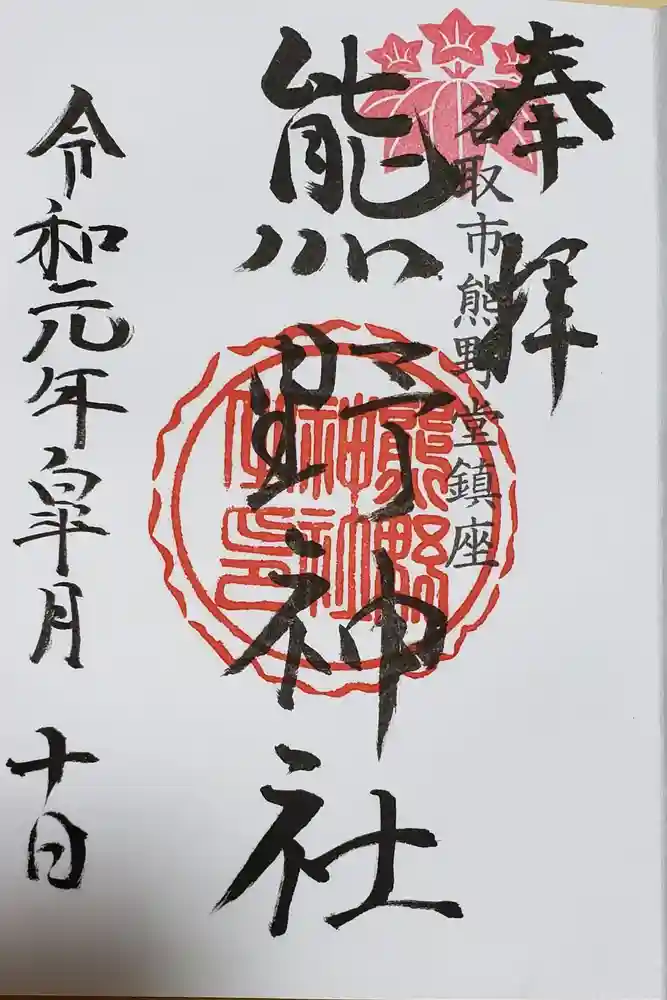 奉拝
名取市熊野堂鎮座
熊野神社
熊野
神社
令和元年皐月
十日